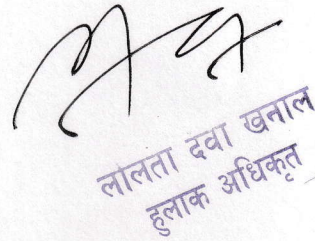 लोलता दवा खनाल
हुलाक अधिकृत